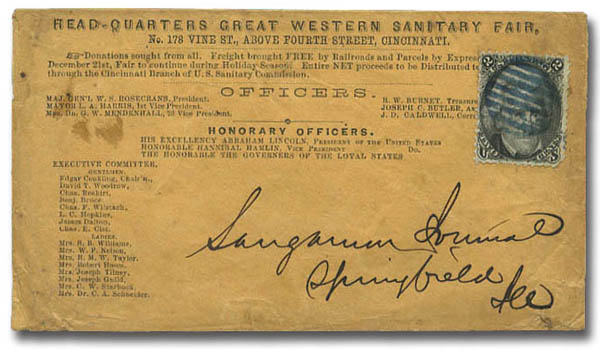 HEAD-QUARTERS GREAT WESTERN SANITARY FAIR,
No. 178 VINE ST., ABOVE FOURTH STREET, CINCINNATI.
Donations sought from all. Freight brought FREE by Railroads and Parcels by Expres
December 21st, Fair to continue during Holiday Season. Entire NET proceeds to be Distributed to
through the Cincinnati Branch of U. S. Sanitary Commission.
OFFICERS.
MAJ. GEN'L W. S. ROSECRANS, President.
MAYOR L. A. HARRIS, 1st Vice President.
Mrs. Dr. G. W. MENDENHALL, 2d Vice President.
R. W. BURNET, Treasure
JOSEPH C. BUTLER, As
J. D. CALDWELL, Corr
HONORARY OFFICERS.
HIS EXCELLENCY ABRAHAM LINCOLN, PRESIDENT OF THE UNITED STATES
HONORABLE HANNIBAL HAMLIN, VICE PRESIDENT DO
THE HONORABLE THE GOVERNORS OF THE LOYAL STATES
EXECUTIVE COMMITTEE,
GENTLEMEN.
Edgar Conkling, Chair'n.,
David T. Woodrow,
Chas. Reakirt,
Benj. Bruce
Chas. F. Wilstach,
L. C. Hopkins,
James Dalton,
Chas. E. Cist.
LADIES.
Mrs. R. B. Williams,
Mrs. W. F. Nelson,
Mrs. R. M. W. Taylor.
Mrs. Robert Hosea,
Mrs. Joseph Tilney,
Mrs. Joseph Guild,
Mrs. C. W. Starbuck,
Mrs. Dr. C. A. Schneider.
2 2
Sangamon Journal
Springfield
Ills